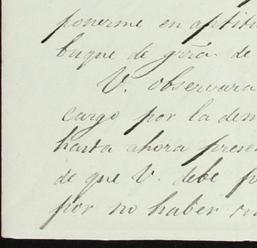 ponerme en aptitu
buque de grra. de
V. observara
cargo por la dem
hasta ahora prese
de que V. debe p
por no haber